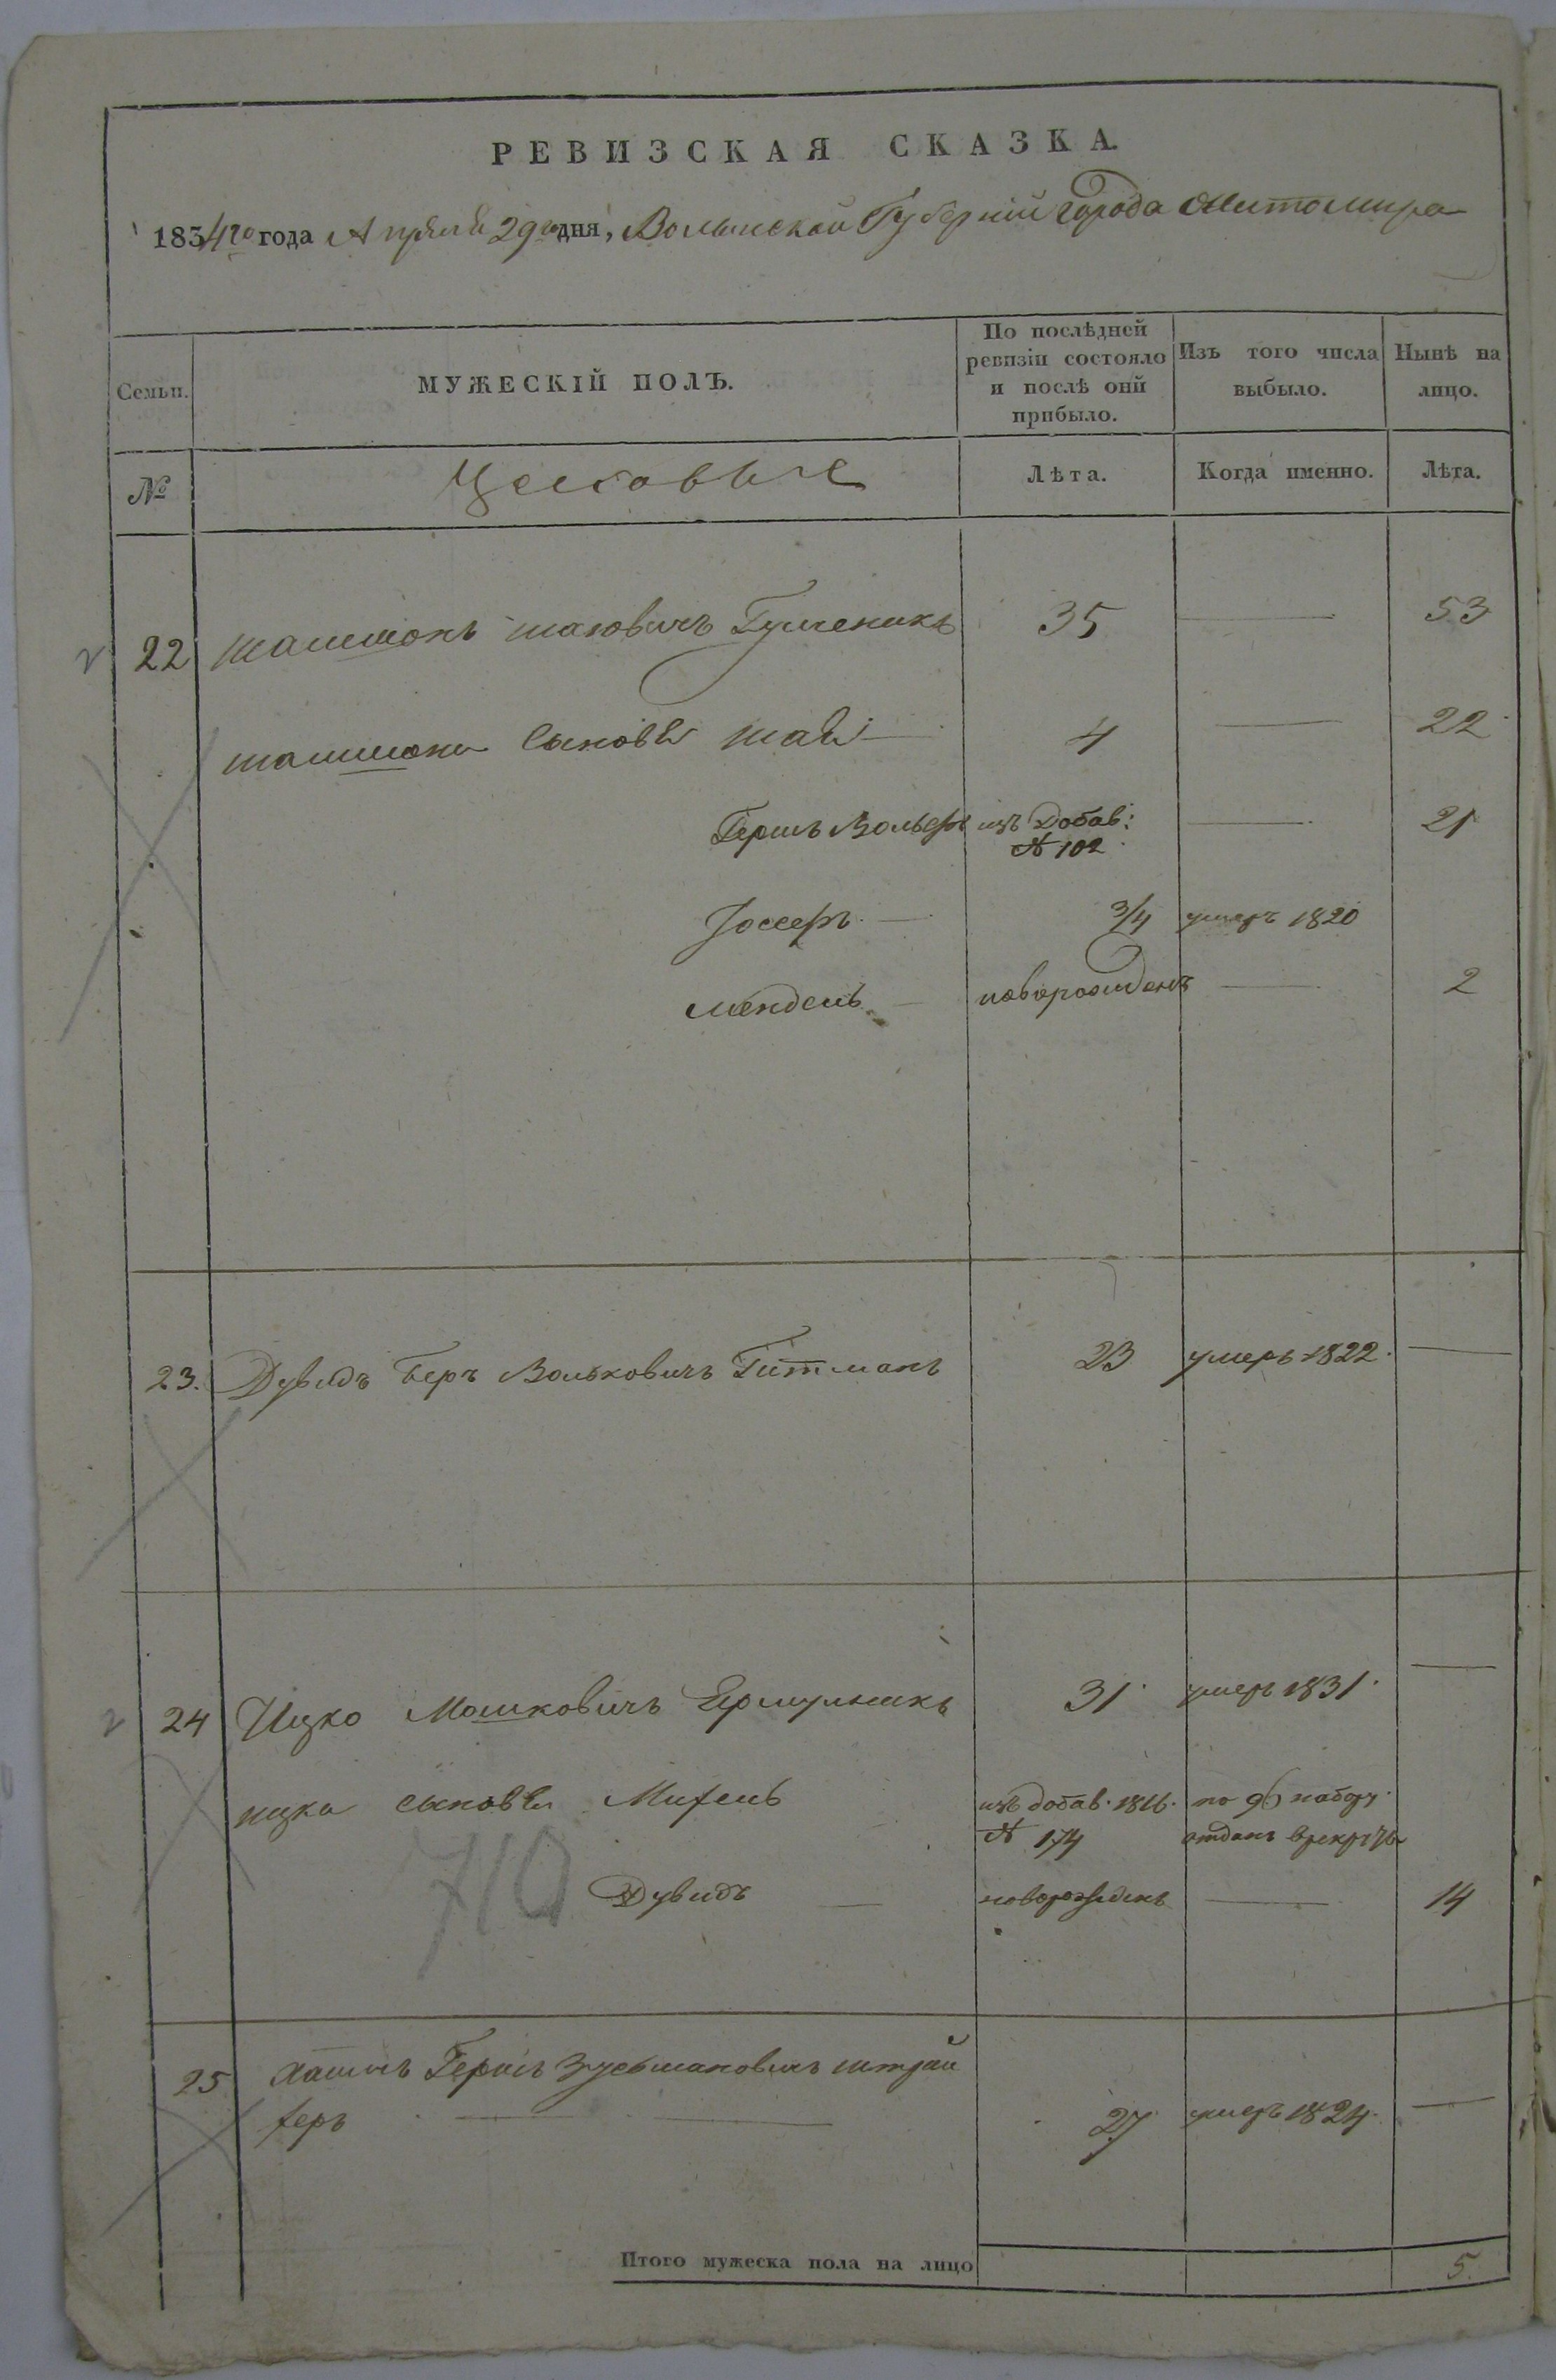 РЕВИЗСКАЯ СКАЗКА.
1834го года Апреля 29го дня, Волынской Губерніи Города Житомира
Семьи.
МУЖЕСКІЙ ПОЛЪ.
По послѣдней ревизіи состояло и послѣ оній прибыло.
Изъ того числа выбыло.
Нынѣ на лицо.
№
Цеховые
Лѣта.
Когда именно.
Лѣта.
22 Шаишонъ Шаювичъ Гулченикъ 35 — 53
Шаишона Сыновья Шая — 4 — 22
Гершъ Вольфъ изъ Добав: — 21
№ 102
Іосефъ — 3/4 умеръ 1820
Мендель — новорожденъ — 2
23. Дувидъ Беръ Вольковичъ Гитманъ 23 умеръ 1822. —
24 Ицко Мошковичъ Ермульникъ 31 умеръ 1831. —
ицка сыновья Михель изъ добав. 1816. по 96 набору
№ 174 отданъ врекруты
710
Дувидъ — новорожденъ — 14
25 Хаимъ Гершъ Зусьмановичъ Штрай
феръ — 27 умеръ 1824. —
Итого мужеска пола на лицо 5.